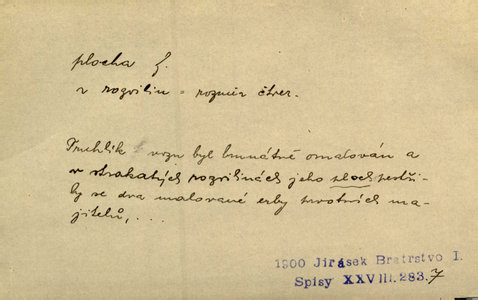 plocha f.
v rozvilin = rozměr čtver.
Truhlík vozu byl bunátně omalován a
v strakatých rozvilinách jeho ploch
by se dva malované erby prvotních ma-
jitelů, ...
1900 Jirásek Bratrstvo I.
Spisy XXVIII.283.7